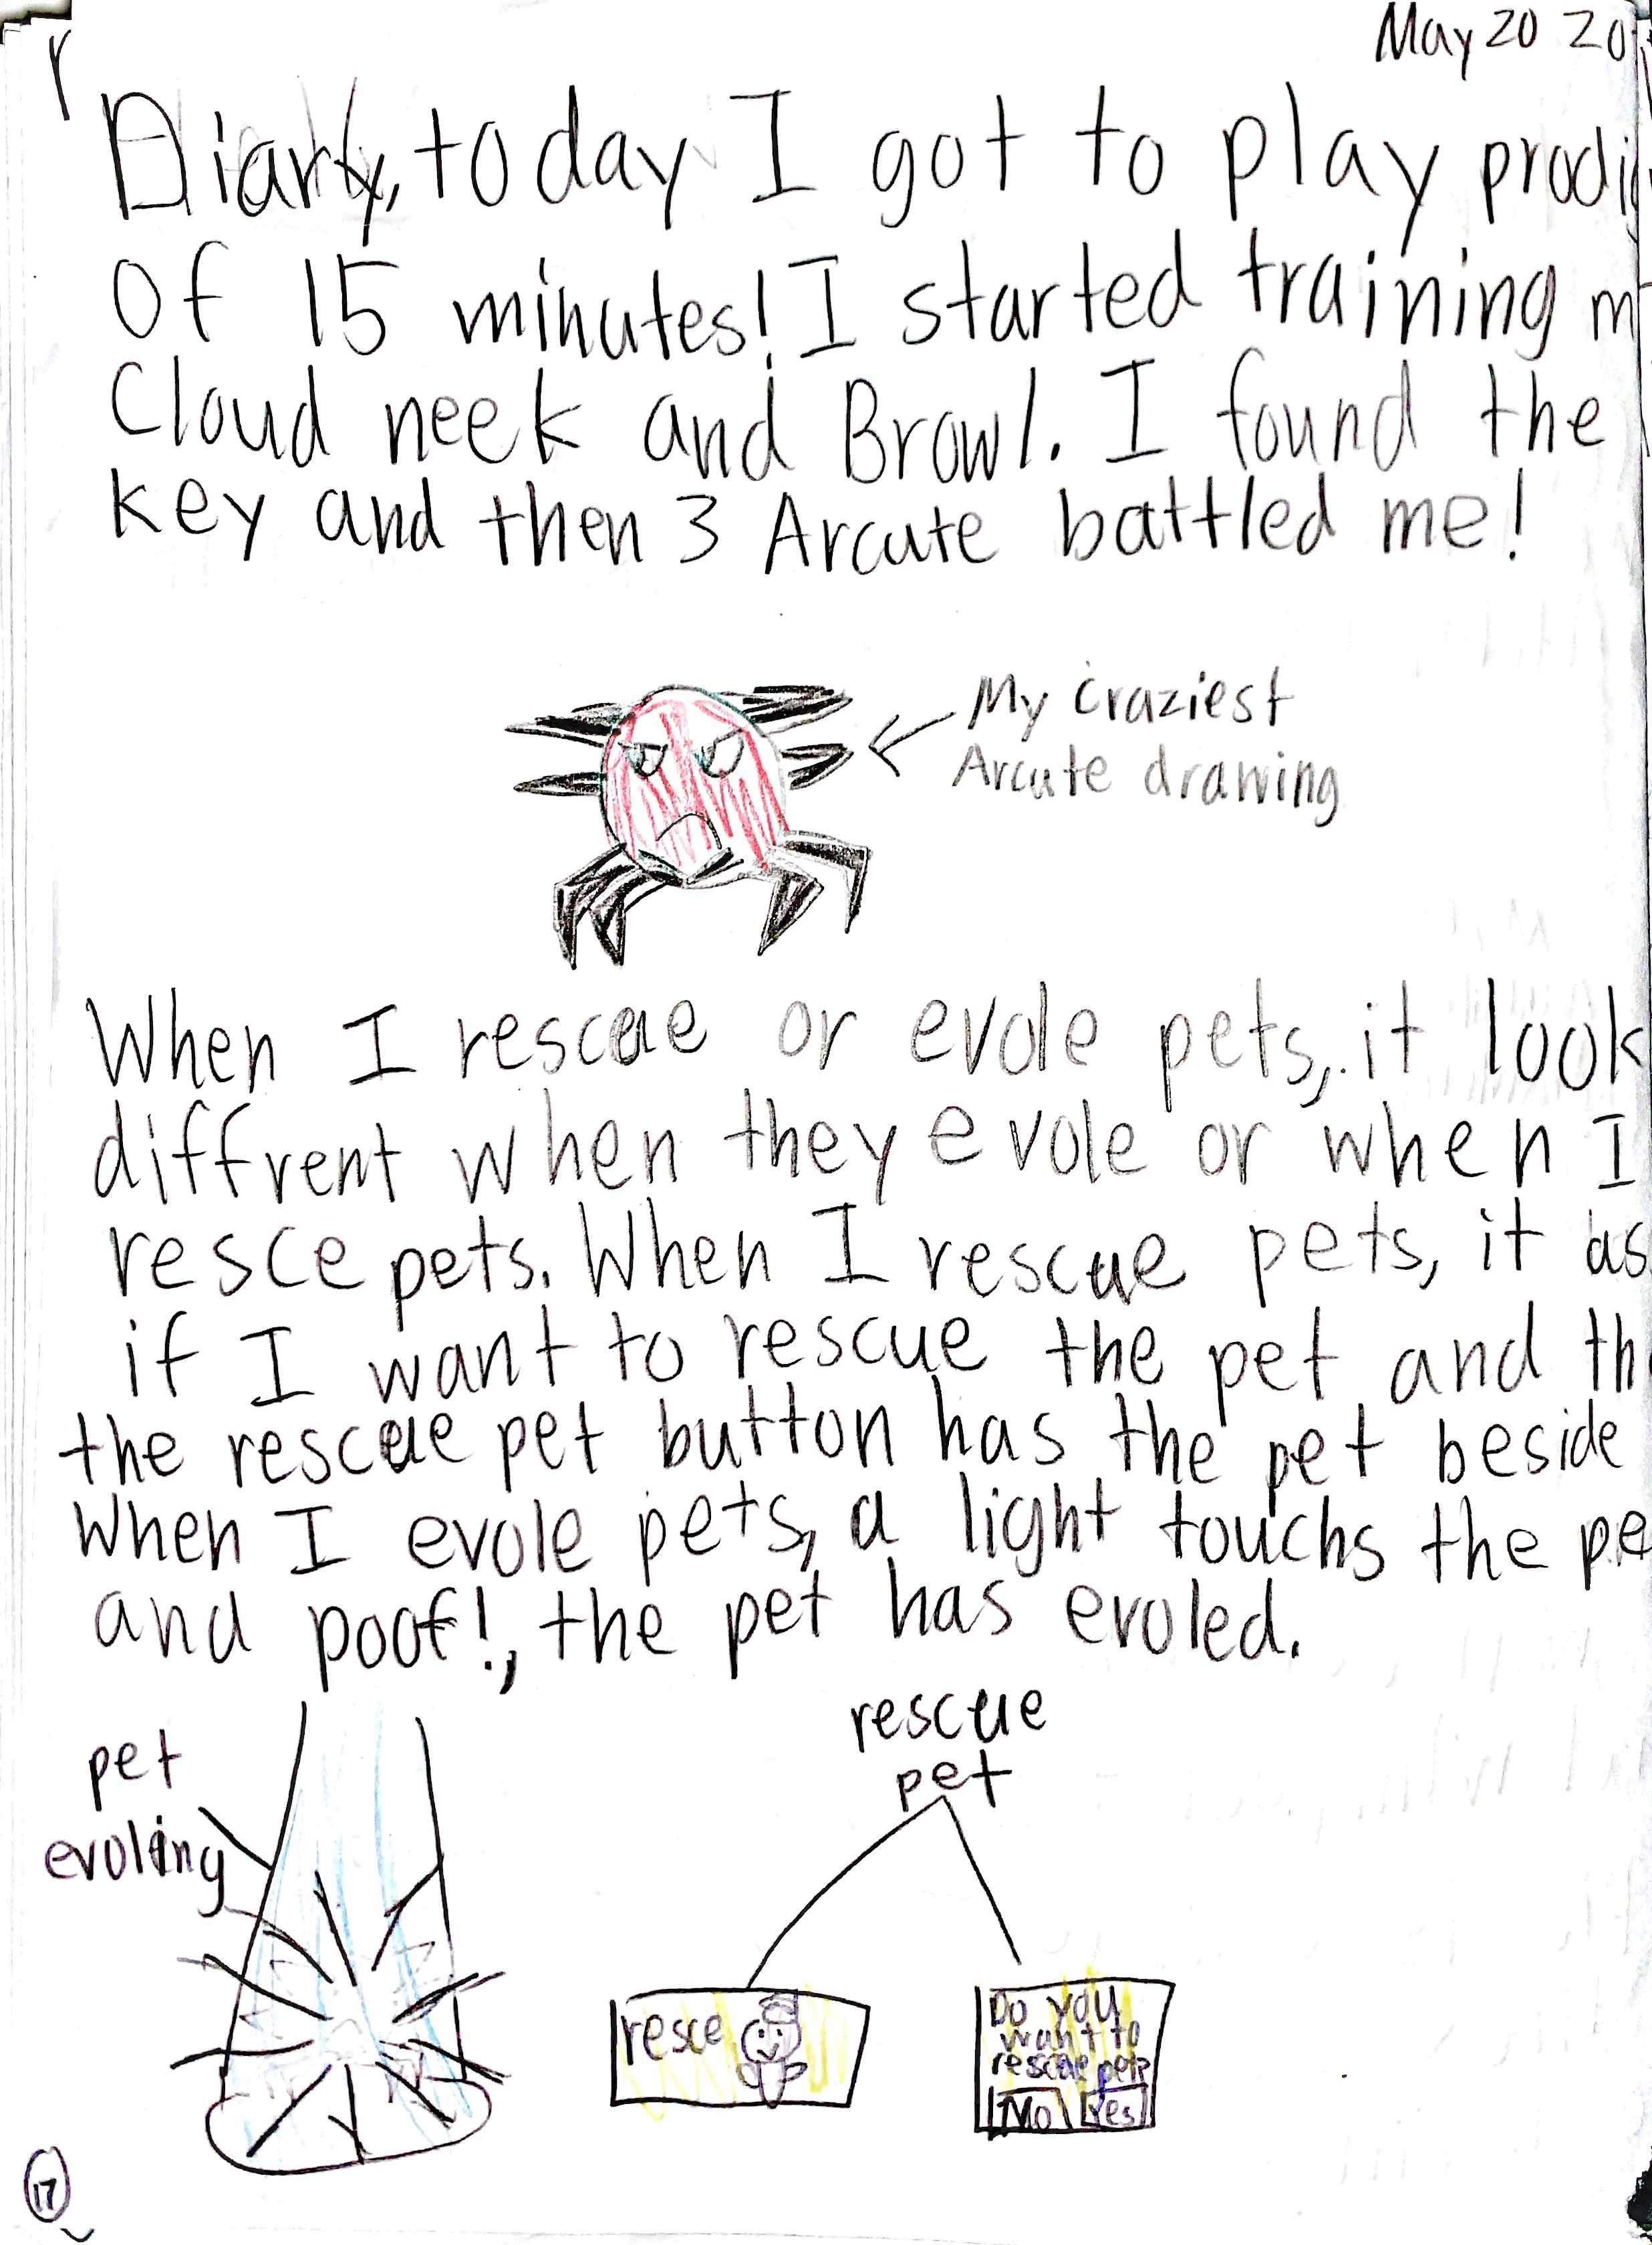 May 20 20
Diary, today I got to play prodi
Of 15 minutes! I started training m
Cloud neek and Browl. I found the
key and then 3 Arcute battled me!
My craziest
Arcute drawing
When I rescue or evole pets, it look
diffrent when they evole or when I
resce pets. When I rescue pets, it as
if I want to rescue the pet and th
the rescue pet button has the pet beside
When I evole pets, a light touchs the pe
and poof!, the pet has evoled.
pet
evoling
rescue
pet
resce
Do you
want to
rescue pet?
No Yes
17